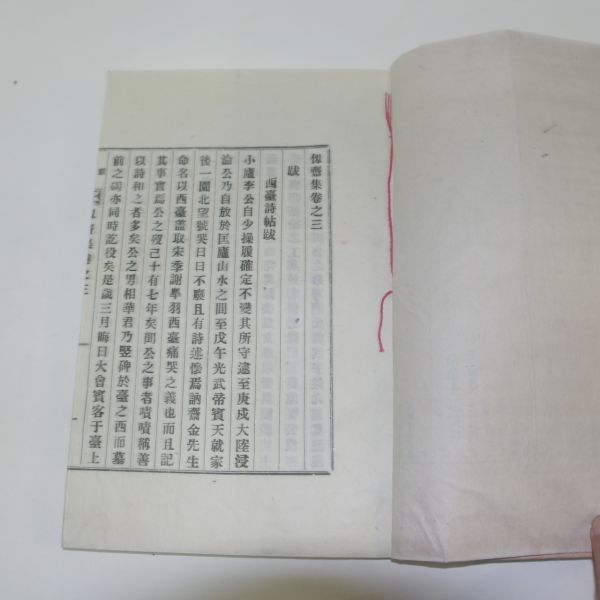 傢齋集卷之三
跋
西臺詩帖跋
小廬李公自少操履確定不變其所守逮至庚戌大陸浸
淪公乃自放於匡廬山水之間至戊午光武帝賓天就家
後一園北望號哭日日不廢且有詩述懷焉訥齋金先生
命名以西臺蓋取宋季謝皐羽西臺痛哭之義也而且記
其事實焉公之歿已十有七年矣聞公之事者嘖嘖稱善
以詩和之者多矣公之男相華君乃竪碑於臺之西而墓
前之碣亦同時訖役矣是歲三月晦日大會賓客于臺上
齋集卷之三